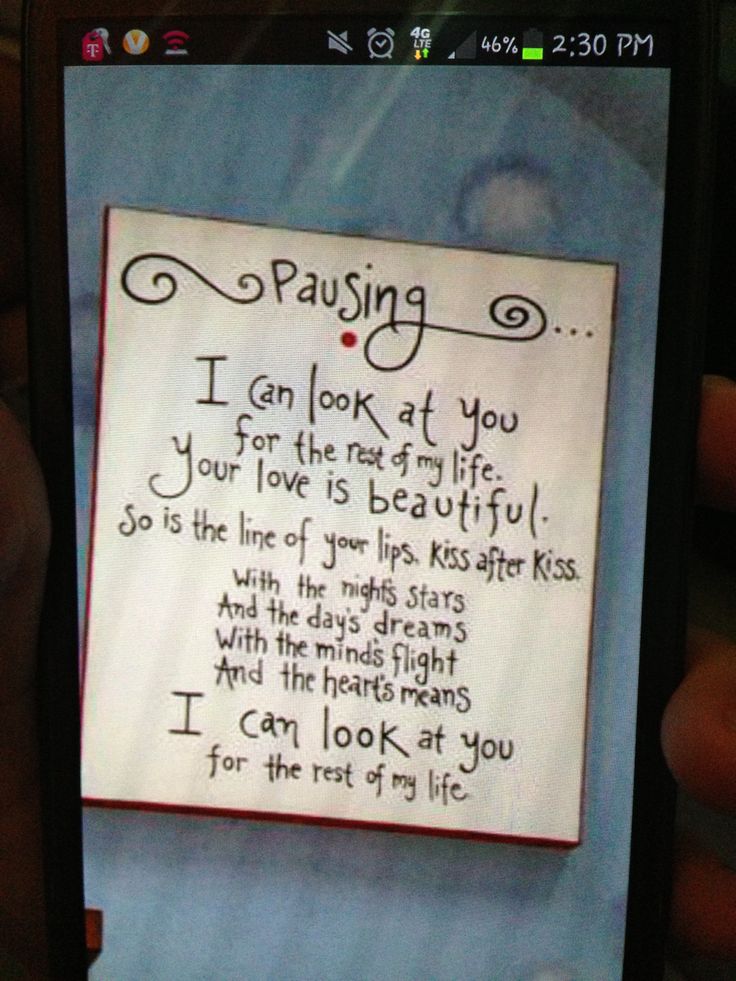 4G
LTE
46% 2:30 PM
Pausing...
I can look at you
for the rest of my life.
Your love is beautiful.
So is the line of your lips. Kiss after Kiss.
With the night's stars
And the day's dreams
With the mind's flight
And the heart's means
I can look at you
for the rest of my life